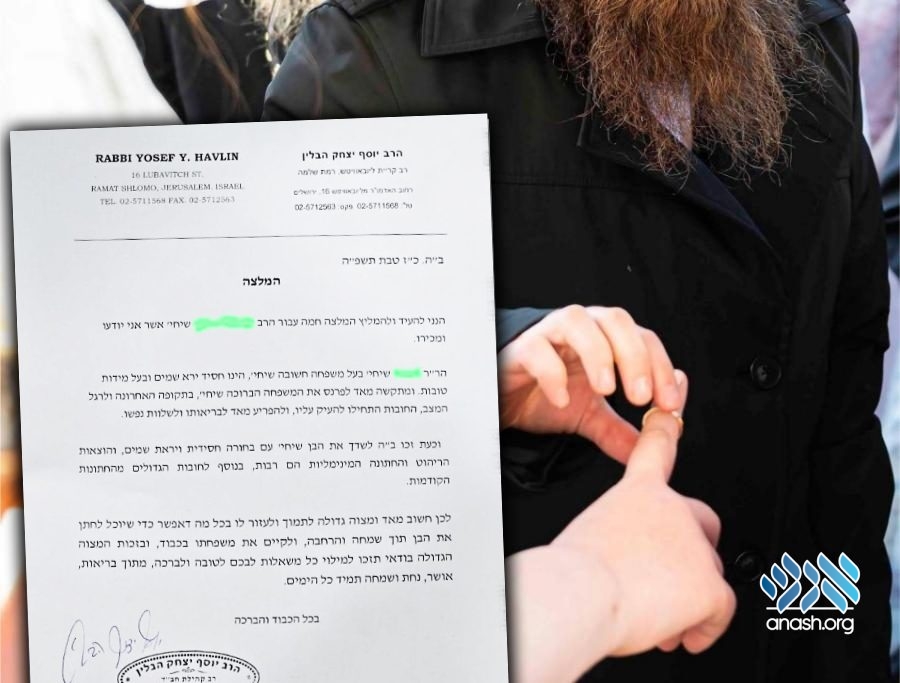 RABBI YOSEF Y. HAVLIN
16 LUBAVITCH ST.
RAMAT SHLOMO, JERUSALEM, ISRAEL
TEL. 02-5711568 FAX. 02-5712563
הרב יוסף יצחק הבלין
רב קרית ליובאוויטש, רמת שלמה
רחוב האדמו"ר מליובאוויטש 16, ירושלים
טל': 02-5711568 פקס: 02-5712563
ב"ה. כ"ז טבת תשפ"ה
המלצה
הנני להעיד ולהמליץ המלצה חמה עבור הרב שיחי' אשר אני יודעו
ומכירו.
הר"ר שיחי' בעל משפחה חשובה שיחי', הינו חסיד ירא שמים ובעל מידות
טובות. ומתקשה מאד לפרנס את המשפחה הברוכה שיחי', בתקופה האחרונה ולרגל
המצב, החובות התחילו להעיק עליו, ולהפריע מאד לבריאותו ולשלוות נפשו.
וכעת זכו ב"ה לשדך את הבן שיחי' עם בחורה חסידית ויראת שמים, והוצאות
הריהוט והחתונה המינימליות הם רבות, בנוסף לחובות הגדולים מהחתונות
הקודמות.
לכן חשוב מאד ומצוה גדולה לתמוך ולעזור לו בכל מה דאפשר כדי שיוכל לחתן
את הבן תוך שמחה והרחבה, ולקיים את משפחתו בכבוד, ובזכות המצוה
הגדולה בודאי תזכו למילוי כל משאלות לבכם לטובה ולברכה, מתוך בריאות,
אושר, נחת ושמחה תמיד כל הימים.
בכל הכבוד והברכה
הרב יוסף יצחק הבלין
רב קהילת חב"ד
אנש
anash.org